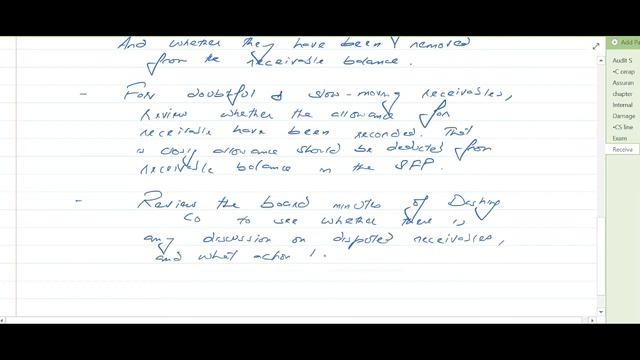 And whether they have been removed
from the receivable balance.
- For doubtful & slow-moving receivables,
Review whether the allowance for
receivable have been recorded. That
is closing allowance should be deducted from
receivable balance in the SFP.
- Review the board minutes of Dashing
Co to see whether there is
any discussion on disputed receivables,
and what action
Add Pa
Audit S
•C cerap
Assuran
chapter
Internal
Damage
•CS line
Exam
Receiva